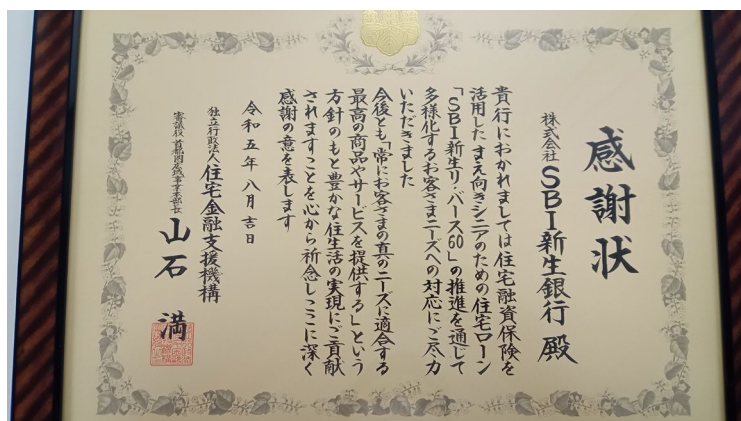 感謝状
株式会社 SBI新生銀行 殿
貴行におかれましては住宅融資保険を
活用したまえ向きシニアのための住宅ローン
「SBI新生リバース60」の推進を通じて
多様化するお客さまニーズへの対応にご尽力
いただきました
今後とも「常にお客さまの真のニーズに適合する
最高の商品やサービスを提供する」という
方針のもと豊かな住生活の実現にご貢献
されますことを心から祈念しここに深く
感謝の意を表します
令和五年八月吉日
独立行政法人 住宅金融支援機構
審議役 首都圏広域事業本部長 山石 満